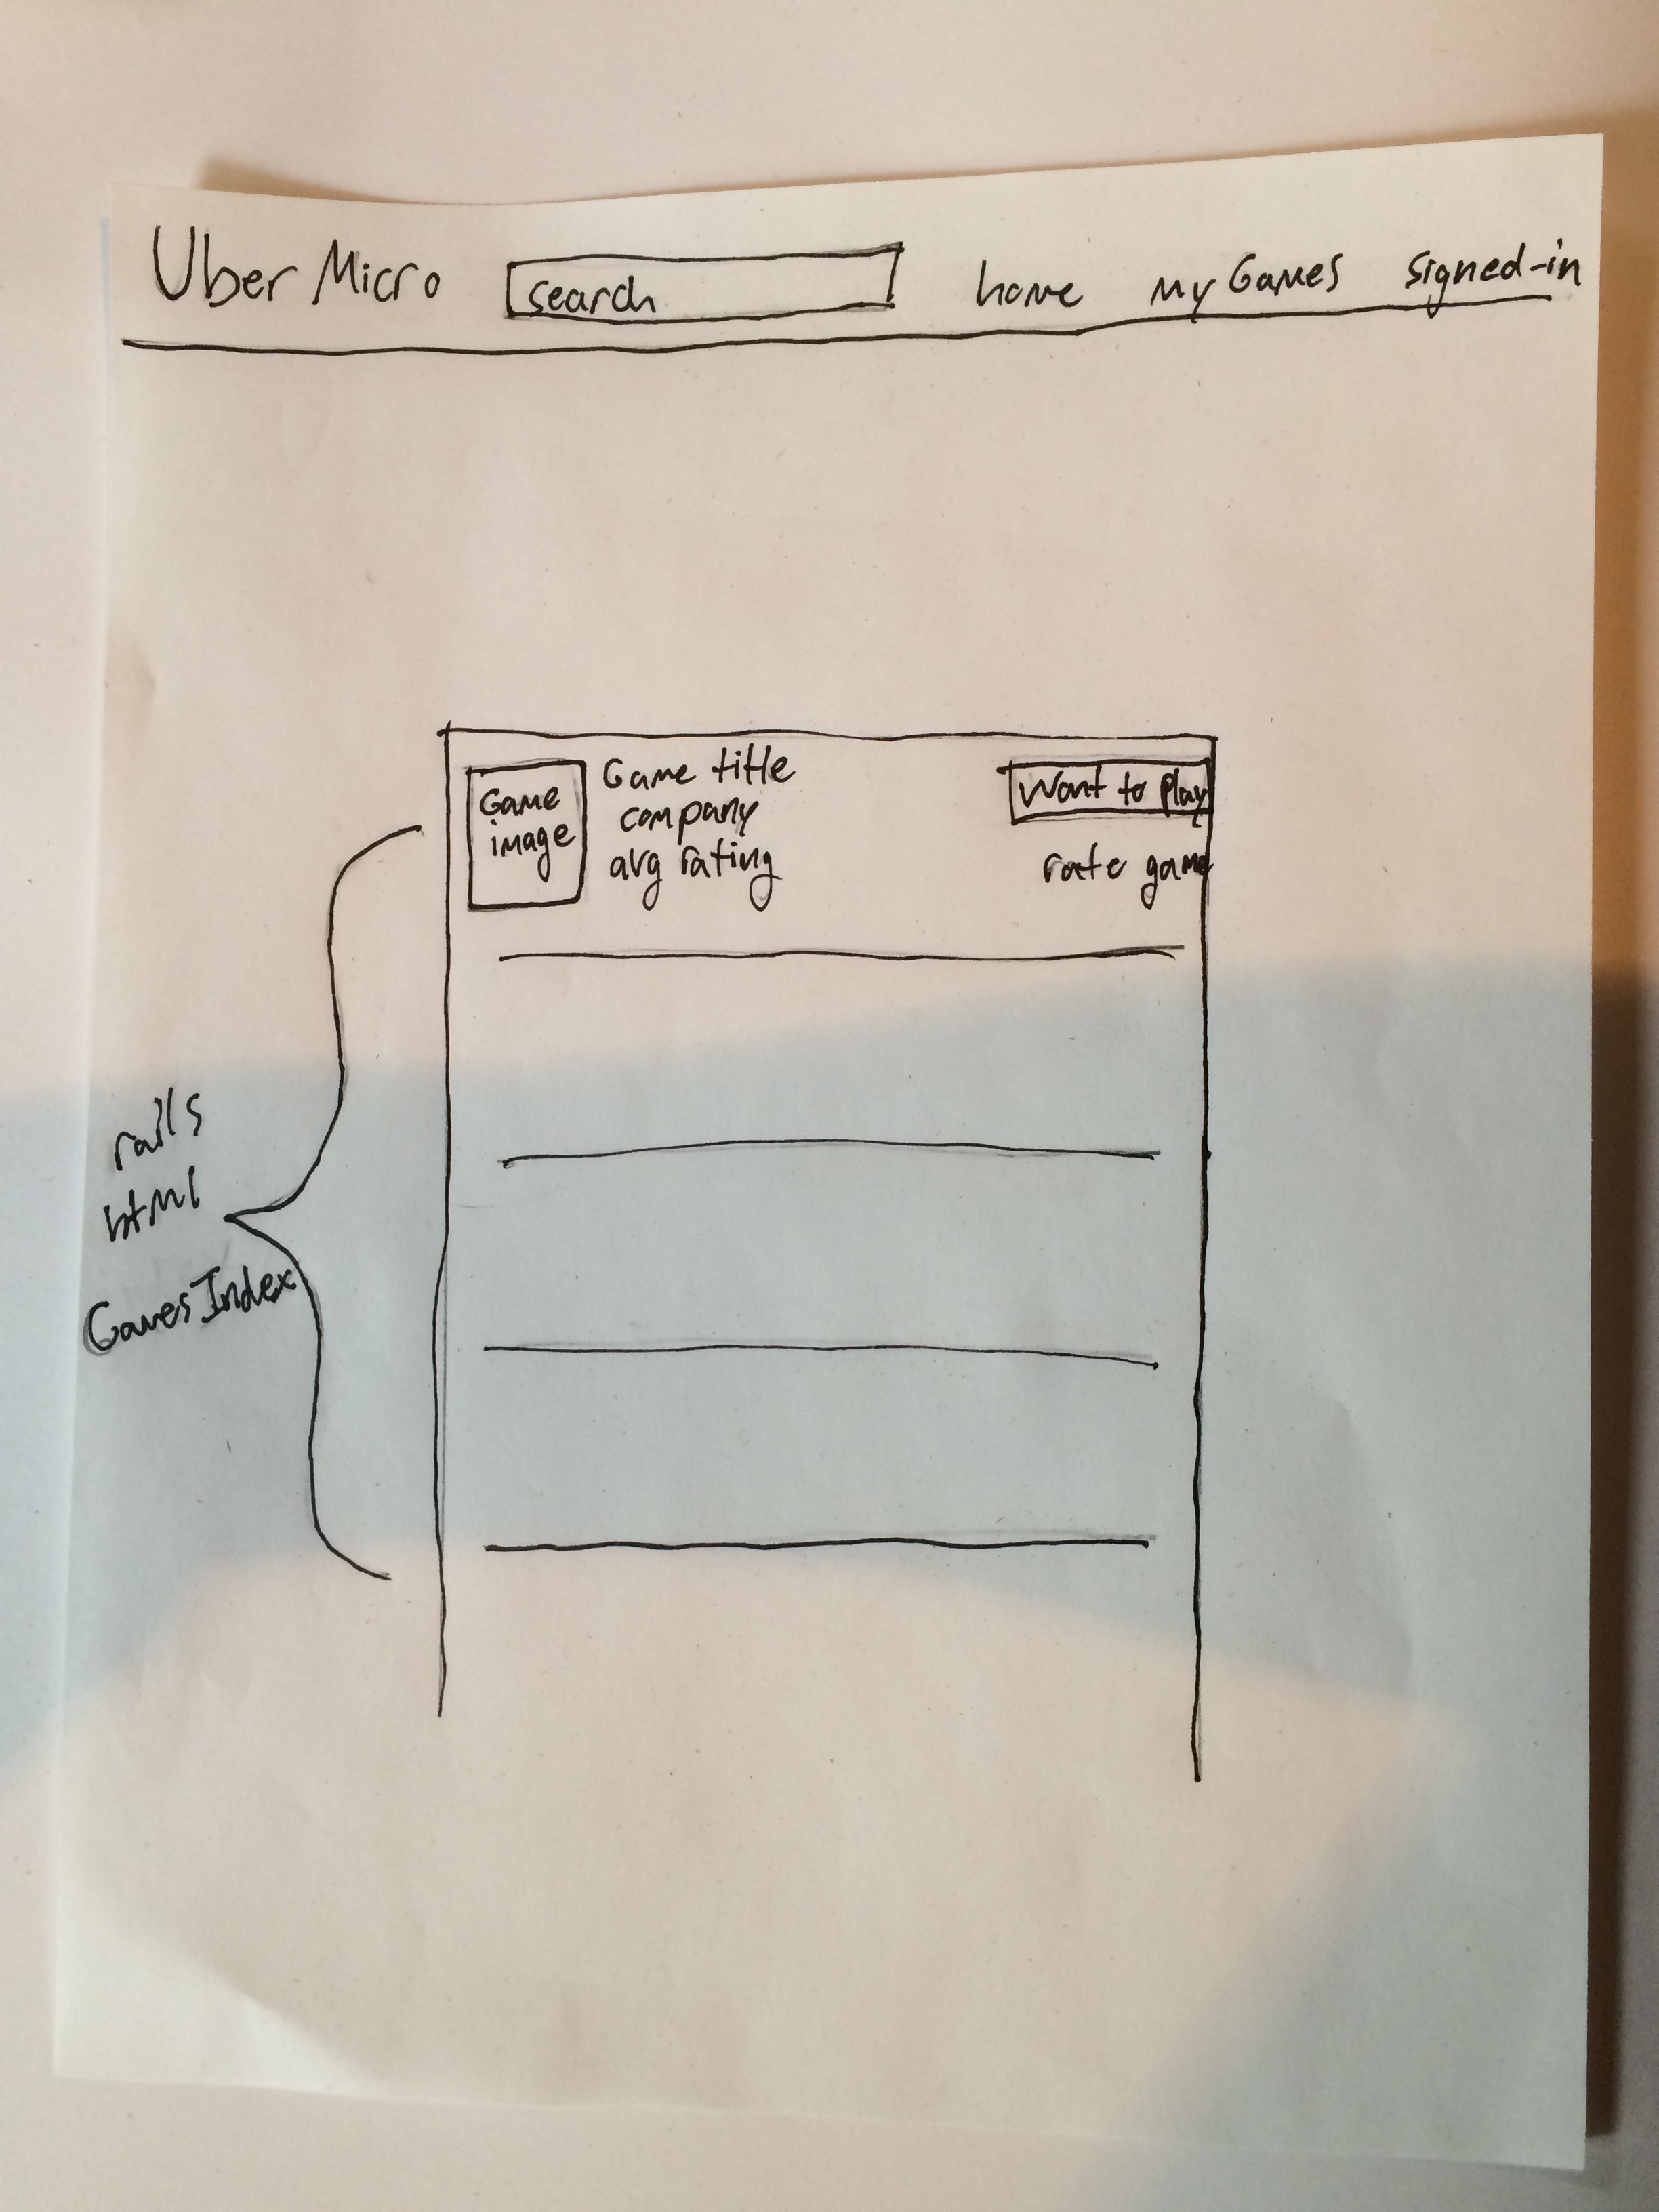 Uber Micro search home my Games signed-in
Game image
Game title
company
avg rating
Want to play
rate game
rails
html
Games Index